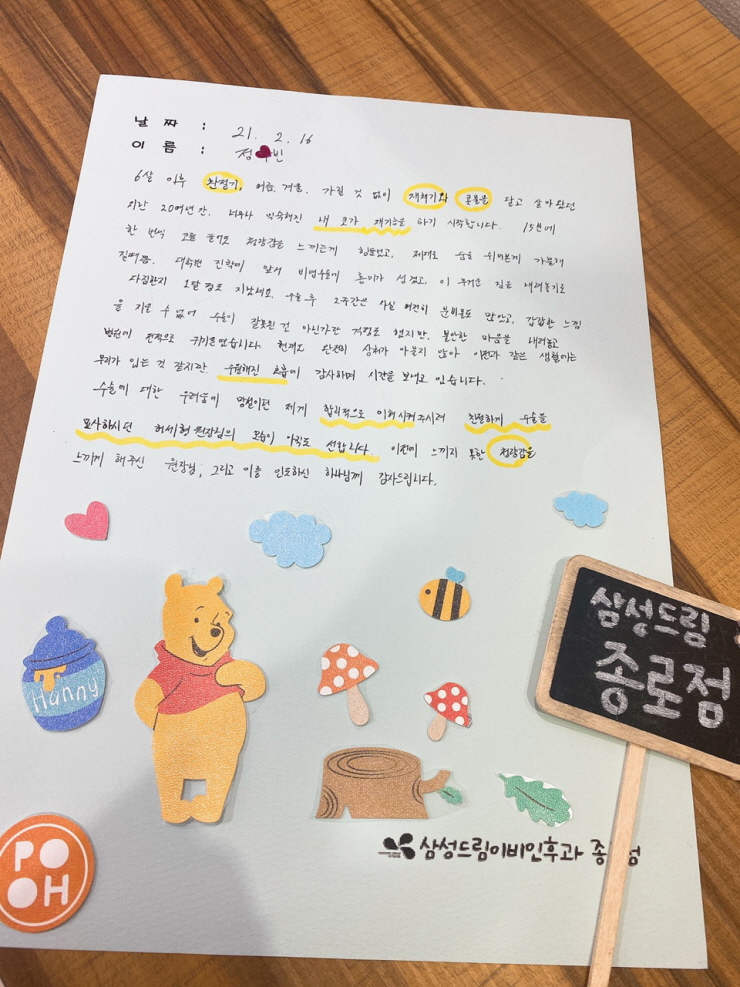 날 짜 : 21. 2. 16
이 름 : 정 빈
6살 이후 환절기, 여름, 겨울, 가릴 것 없이 재채기와 콧물을 달고 살아왔던
지난 20여년간. 너무나 익숙해진 내 코가 제기능을 하기 시작합니다. 15분에
한 번씩 코를 풀어도 청량감을 느끼는게 힘들었고, 제대로 숨을 쉬어본게 가물해
질때쯤. 대학병 진학에 앞서 비염수술에 흥미가 생겼고, 이 무거운 짐을 내려놓기로
다짐한지 1달 정도 지났네요. 수술 후 2주간은 사실 여전히 분비물도 많았고, 갑갑한 느낌
을 지울 수 없어 수술이 잘못된 건 아닌가란 걱정도 했지만, 불안한 마음을 내려놓고
병원에 전적으로 귀기울였습니다. 현재도 완전히 상처가 아물지 않아 이전과 같은 생활에는
무리가 있는 것 같지만, 수월해진 호흡에 감사하며 시간을 보내고 있습니다.
수술에 대한 두려움이 앞섰던 제게 합리적으로 이해시켜주시려 친절하게 수술을
묘사하시던 허세형 원장님의 모습이 아직도 선합니다. 이전에 느끼지 못한 청량감을
느끼게 해주신 원장님, 그리고 이를 인도하신 하나님께 감사드립니다.
Hunny
삼성드림
종로점
PO
OH
삼성드림이비인후과 종 점